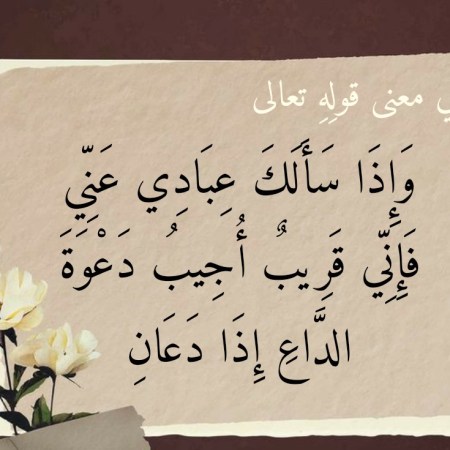 معنى قولِهِ تعالى
وَإِذَا سَأَلَكَ عِبَادِي عَنِّي
فَإِنِّي قَرِيبٌ أُجِيبُ دَعْوَةَ
الدَّاعِ إِذَا دَعَانِ